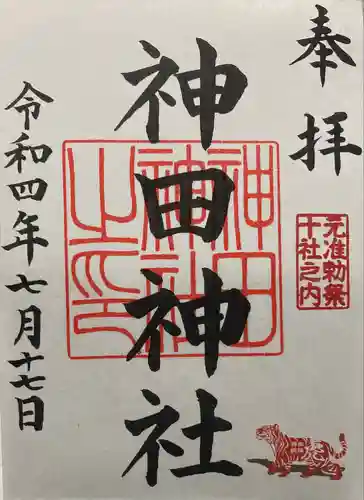 奉拝
元准勅祭
十社之内
神田神社
神田
神社
之印
令和四年七月十七日